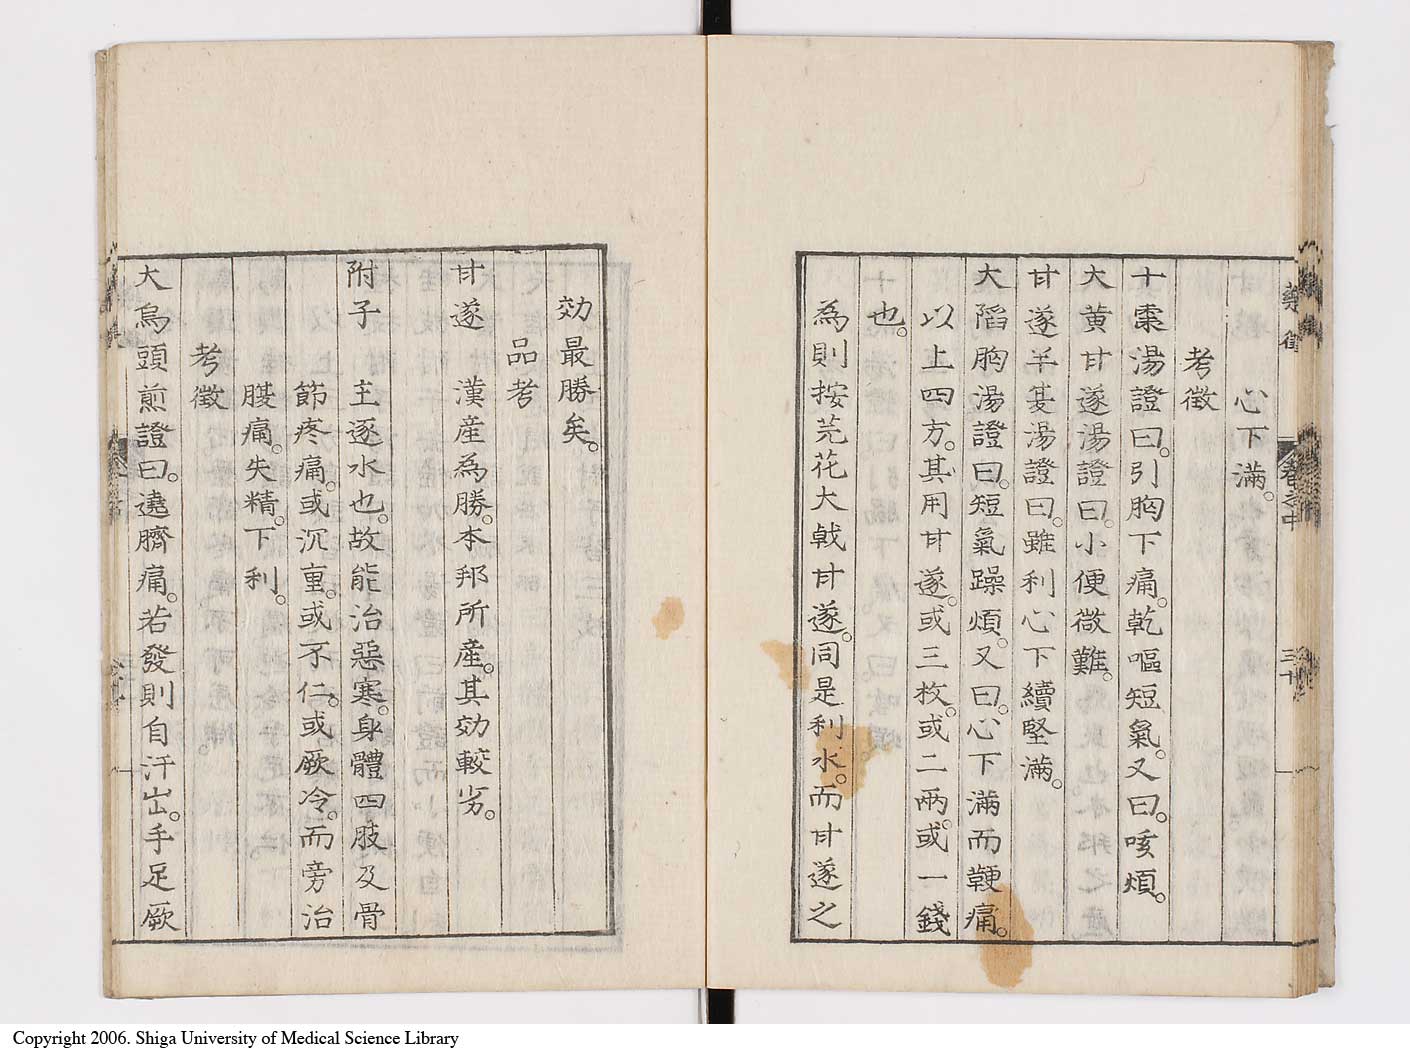 藥徴 卷之中 三十
心下滿。
考徵
十棗湯證曰。引胸下痛。乾嘔短氣。又曰。咳煩。
大黃甘遂湯證曰。小便微難。
甘遂半夏湯證曰。雖利心下續堅滿。
大陷胸湯證曰。短氣躁煩。又曰。心下滿而鞕痛。
以上四方。其用甘遂。或三枚。或二兩。或一錢
也。
為則按芫花大戟甘遂。同是利水。而甘遂之
効最勝矣。
品考
甘遂 漢産為勝。本邦所産。其効較劣。
附子 主逐水也。故能治惡寒。身體四肢及骨
節疼痛。或沉重。或不仁。或厥冷。而旁治
腹痛。失精。下利。
考徵
大烏頭煎證曰。遶臍痛。若發則自汗出。手足厥
Copyright 2006. Shiga University of Medical Science Library